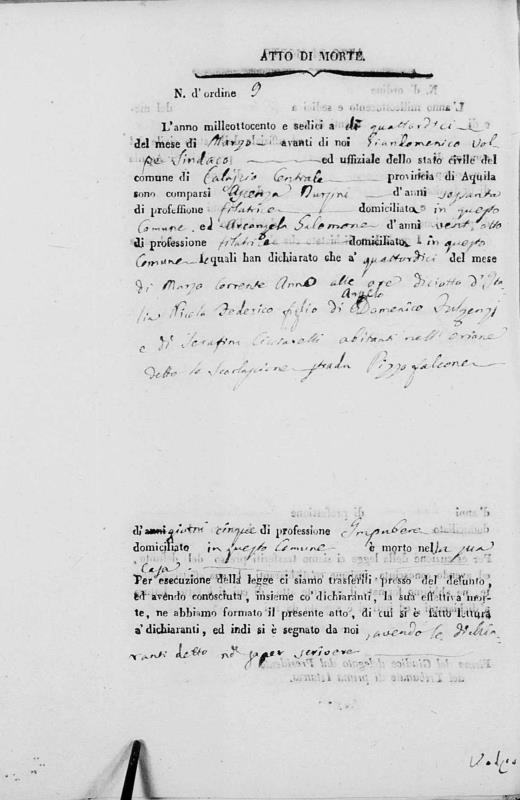 ATTO DI MORTE.
N. d'ordine 9
L'anno milleottocento e sedici a dì quattordici
del mese di Marzo avanti di noi Giandomenico Vol
pe Sindaco ed uffiziale dello stato civile del
comune di Calascio Centrale provincia di Aquila
sono comparsi d'anni sessanta
di professione filatrice domiciliata in questo
Comune, ed Arcangela Salomone d'anni vent'otto
di professione filatrice domiciliata in questo
Comune lequali han dichiarato che a' quattordici del mese
di Marzo Corrente Anno alle ore diciotto d'Ita
lia Nicola Federico figlio di Angelo Domenico Fulgenzi
e di Serafina Ciuffarelli abitanti nell'
detto lo strada Pizzo falcone
d'anni giorni cinque di professione Impubere
domiciliato in questo Comune è morto nella sua
Casa
Per esecuzione della legge ci siamo trasferiti presso del defunto,
ed avendo conosciuta, insieme co' dichiaranti, la sua effettiva mor-
te, ne abbiamo formato il presente atto, di cui si è fatto lettura
a' dichiaranti, ed indi si è segnato da noi avendo le dichia
ranti detto non saper scrivere
Volpe